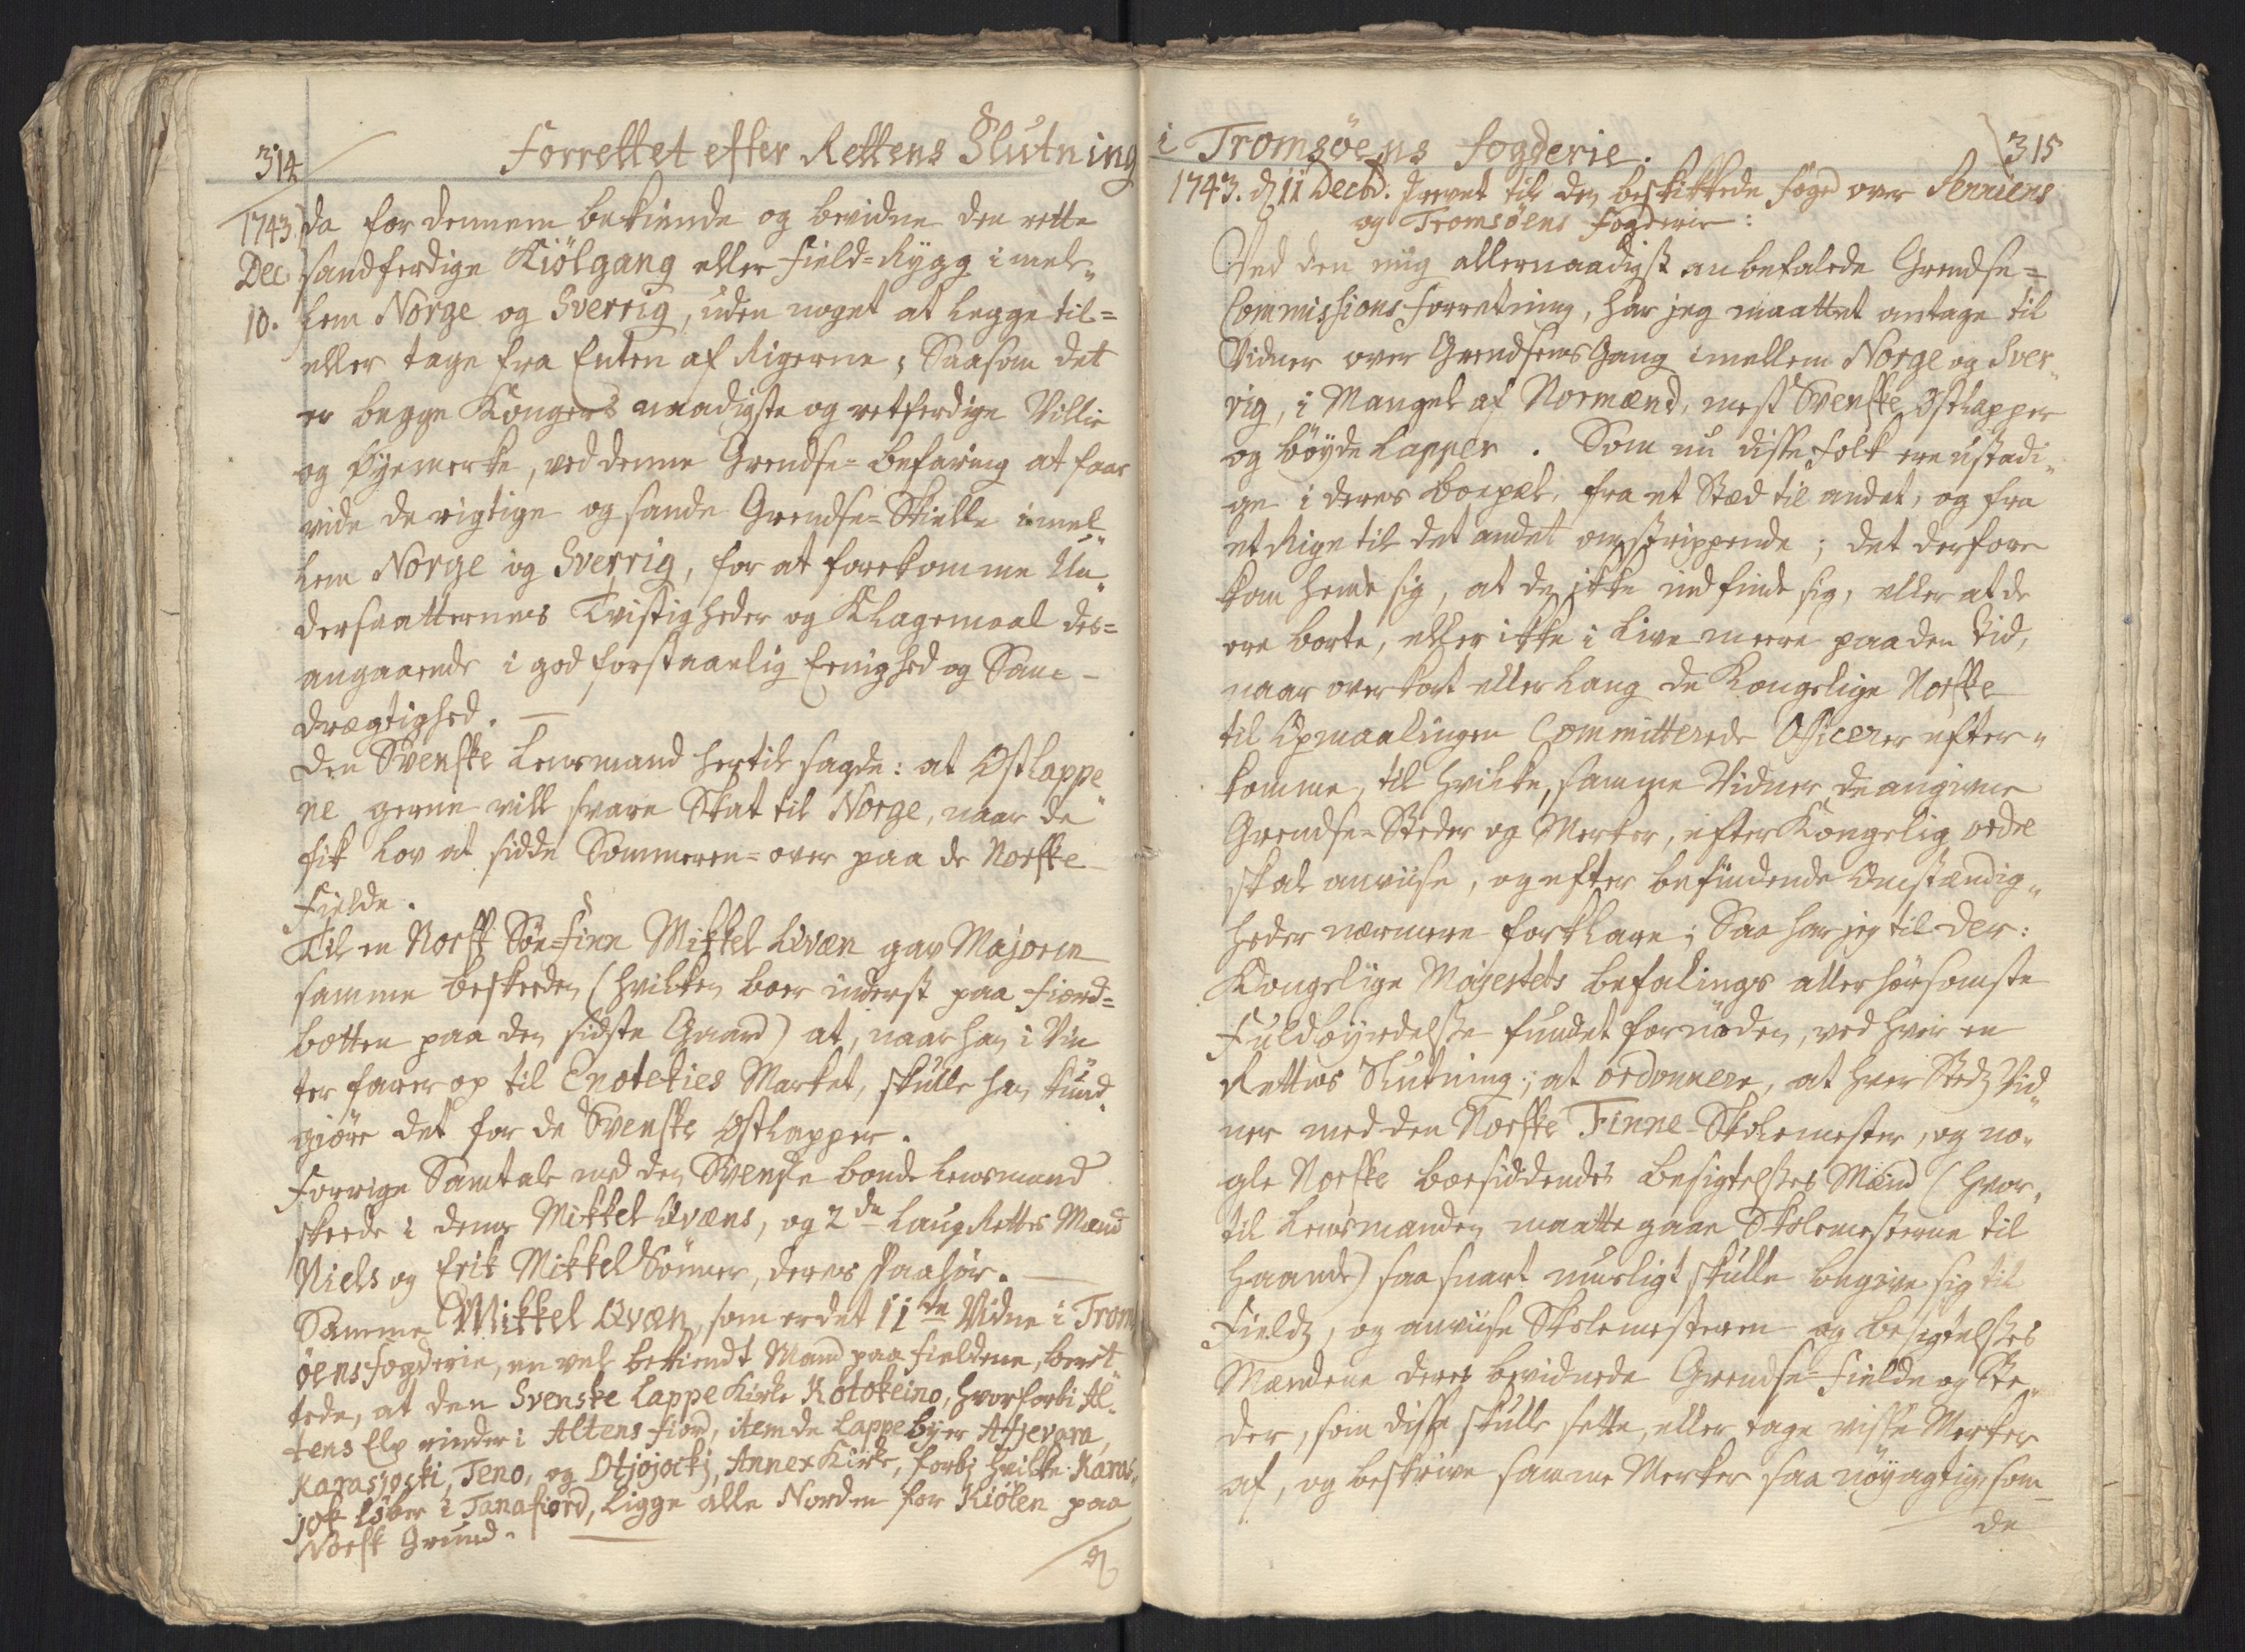 314
Forrettet efter Rettens Slutning
1743 da for dennem bekiende og bevidne den rette
Dec sandferdige Kiölgang eller Field-Rygg imel-
10. lem Norge og Sverrig, uden noget at legge til-
eller tage fra Enten af Rigerne; Saasom det
er begge Kongers naadigste og retferdige Villie
og Øyemerke, ved denne Grendse-befaring at faae
vide de rigtige og sande Grendse-Skielle imel-
lem Norge og Sverrig, for at forekomme Un-
dersaatternes Tvistigheder og Klagemaal des-
angaaende i god forstaaelig Eenighed og Sam-
drægtighed. —
Den Svenske Lensmand hertil sagde: at Østlappe
ne gierne vill svare Skat til Norge, naar de
fik Lov at sidde Sommeren-over paa de Norske
Fielde.
Til en Norsk Søe-Finn Mikkel Qvæn gav Majoren
samme beskeeden (hvilken boer inderst paa Fiord-
botten paa den sidste Gaard) at, naar han i Vin
ter farer op til Enotekies Market, skulle han kund-
giøre det for de Svenske Østlapper.
Forrige Samtale med den Svenske bonde Lensmand
skeede i denne Mikkel Qvæns, og 2de Laug Rettes Mænd
Niels og Erik MikkelSønner, deres Paahör. —
Samme Mikkel Qvæn, som er det 11te Vidne i Trom
öens fogderie, en vel bekiendt Mand paa fieldene, beret
tede, at den Svenske Lappe Kirke Kotokeino, hvorforbi Al-
tens Elv rinder i Altens fiord, item de Lappe byer Afjevara,
Karasjoski, Teno, og Otjojocki, Annex Kirke, forbi hvilke Karas-
jok löber i Tanafiord, Ligge alle Norden for Kiölen paa
Norsk Grund. —
d
i Tromsöens fogderie.
315
1743. d 11 Decbr. Prevet til den beskikkede foged over Senniens
og Tromsöens Fogderie:
Ved den mig allernaadigst anbefalede Grendse-
Commissions forretning, har jeg maattet antage til
Vidner over Grendsens Gang imellem Norge og Sver-
rig, i Mangel af Normænd, mest Svenske Østlapper
og böyde Lapper. Som nu disse folk ere ustadi-
ge i deres boepæl, fra et Stæd til andet, og fra
et Rige til det andet omstrippende; det derfore
kan hende sig, at de ikke indfinde sig, eller at de
ere borte, eller ikke i Live meere paa den Tid,
naar over kort eller lang de Kongelige Norske
til Opmaalingen Committerede Officerer efter-
komme, til hvilke, samme Vidner de angivne
Grendse-Steder og Merker, efter Kongelig ordre
skal anviise, og efter befindende Omstændig-
heder nærmere forklare; Saa har jeg til Der:
Kongelige Majestets befalings allerhørsomste
Fuldbyrdelse fundet fornöden, ved hver en
Rettes Slutning; at ordonnere, at hver Stedz Vid-
ner med den Norske Finne-Skolemester, og no-
gle Norske boesiddendes besigtelses Mænd (hvor-
til Lensmanden maatte gaae Skolemesterne til
Haande) saa snart mueligt skulle begive sig til
Fieldz, og anviise Skolemesteren og besigtelses
Mændene deres bevidnede Grendse-Fielde og Ste-
der, som disse skulle sette, eller tage visse Merker
af, og beskrive samme Merker saa nöyagtige, som
de